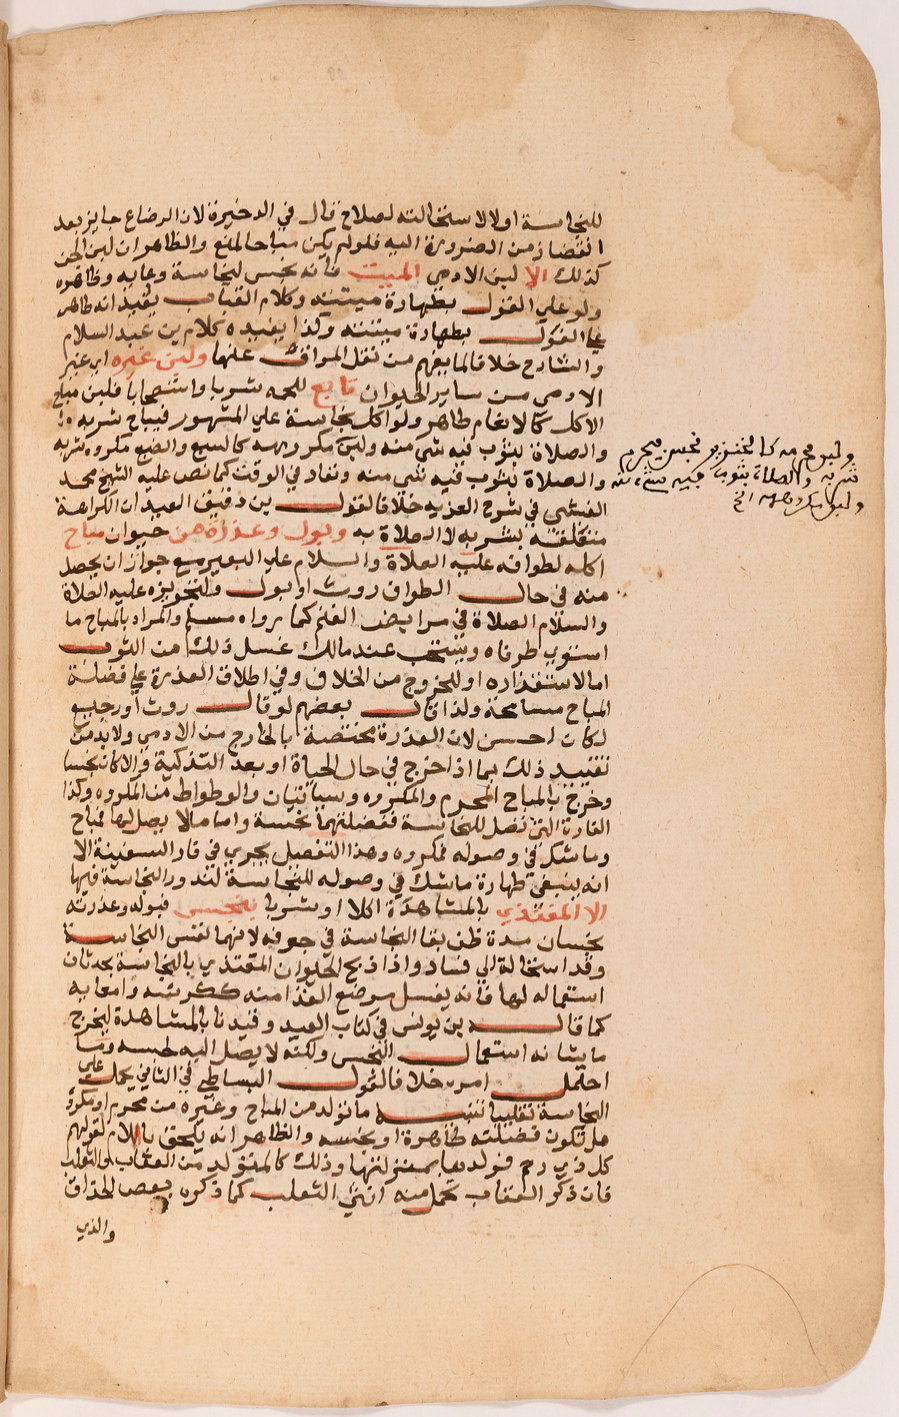 للنجاسة اولا لاستحالته لصلاح قال في الدخيرة لان الرضاع جايز بعد
انقضا زمن الضرورة اليه فلولم يكن مباحا لمنع والظاهر ان لبن الجن
كذلك الا لبن الادمي الميت فانه نجس لنجاسة وعايه وظاهره
ولو علي القول بطهارة ميتته وكلام القباب يفيد انه طاهر
علي القول بطهارة ميتته وكذا يفيده كلام بن عبد السلام
والشارح خلافا لما يفهم من نقل المواق عنها ولبن غيره اي غير
الادمي من ساير الحيوان تابع للحمه شربا واستصحابا فلبن مباح
الاكل كالانعام طاهر ولو اكل نجاسة علي المشهور فيباح شربه
والصلاة بثوب فيه شي منه ولبن مكروهه كالسبع والضبع مكروه شربه
والصلاة بثوب فيه شي منه وتعاد في الوقت كما نص عليه الشيخ محمد
الفيشي في شرح العزيه خلافا لقول بن دقيق العيد ان الكراهة
متعلقة بشربه لا الصلاة به وبول وعذرة من حيوان مباح
اكله لطوافه عليه الصلاة والسلام علي البعير مع جواز ان يحصل
منه في حال الطواف روث او بول ولتجويزه عليه الصلاة
والسلام الصلاة في مرابض الغنم كما رواه مسلم والمراد بالمباح ما
استوي طرفاه ويستحب عند مالك غسل ذلك من الثوب
اما لاستقذاره او للخروج من الخلاف وفي اطلاق العذرة علي فضلة
المباح مسامحة ولذا قال بعضهم لو قال روث او رجيع
لكان احسن لان العذرة مختصة بالخارج من الادمي ولابد من
تقييد ذلك بما اذا خرج في حال الحياة او بعد التذكية والا كان نجسا
وخرج بالمباح المحرم والمكروه وسياتيان والوطواط من المكروه وكذا
الفارة التي تصل للنجاسة ففضلتهما نجسة واما ما لا يصل لها فمباح
وما شك في وصوله فمكروه وهذا التفصيل يجري في فار السفينة الا
انه ينبغي طهارة ما شك في وصوله للنجاسة لندور النجاسة فيها
الا المغتذي بالمشاهدة اكلا او شربا بنجس فبوله وعذرته
نجسان مدة ظن بقا النجاسة في جوفه لانهما لنفس النجاسة
وقد استحالة الي فساد واذا ذبح الحيوان المقتذي بالنجاسة بحدثان
استعماله لها فانه يغسل موضع الغذا منه ككرشه وامعايه
كما قال بن يونس في كتاب الصيد وقيدنا بالمشاهدة ليخرج
ما شانه استعمال النجس ولكنه لا يصل اليه لحبسه وما
احتمل امره خلافا لقول البساطي في الثاني يحمل علي
النجاسة تغليبا تنبيه ما تولد من المباح وغيره من محرم او مكروه
هل تكون فضلته طاهرة او نجسه والظاهر انه يلحق بالام لقولهم
كل ذي رحم فولدها بمنزلتها وذلك كالمتولد من العقاب والثعلب
فان ذكر العقاب تحمل منه انثي الثعلب كما ذكره بعض الحذاق
والذي
ولبن محرمه كالخنزير نجس يحرم
شربه والصلاة بثوب فيه شي منه
ولبن مكروهه الخ